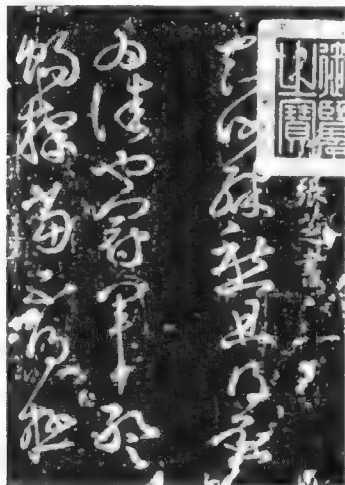 張芝書
知汝殊愁且得還
為佳也冠軍暫
暢釋當不得極